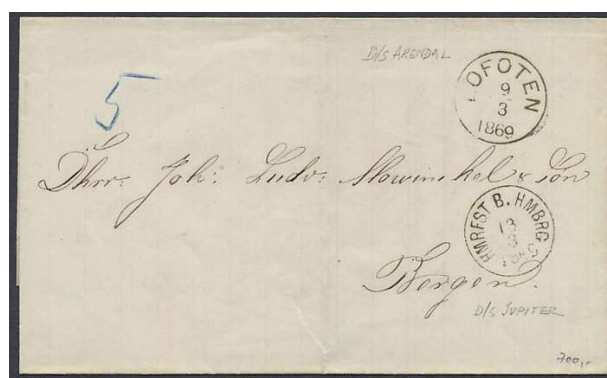 D/S ARENDAL
LOFOTEN
9
3
1869
5
Dhrr. Joh: Ludv: Mowinckel & Søn
HMRFST B. HMBRG
13
3
Bergen.
D/S JUPITER
700,-